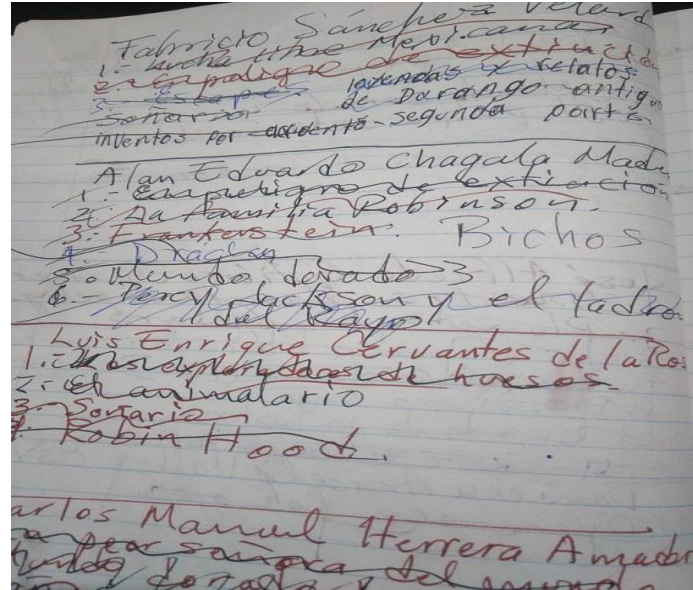 Fabricio Sánchez Velard
1.- Lucha libre Mexicana
2.- en peligro de extinció
3.- Escape leyendas y relatos
Sonario de Darango antigu
inventos por accidente segunda parte
Alan Eduardo Chagala Made
1.- En peligro de extincion
2.- La familia Robinson.
3.- Frankenstein. Bichos
4.- Dragón
5.- Mundo dorado 3
6.- Percy Jackson y el ladrón
del Rayo
Luis Enrique Cervantes de la Ros
1.- Los exploradores de huesos.
2.- El animalario
3.- Sonario
4. Robin Hood.
arlos Manuel Herrera Amador
peor señora del mundo